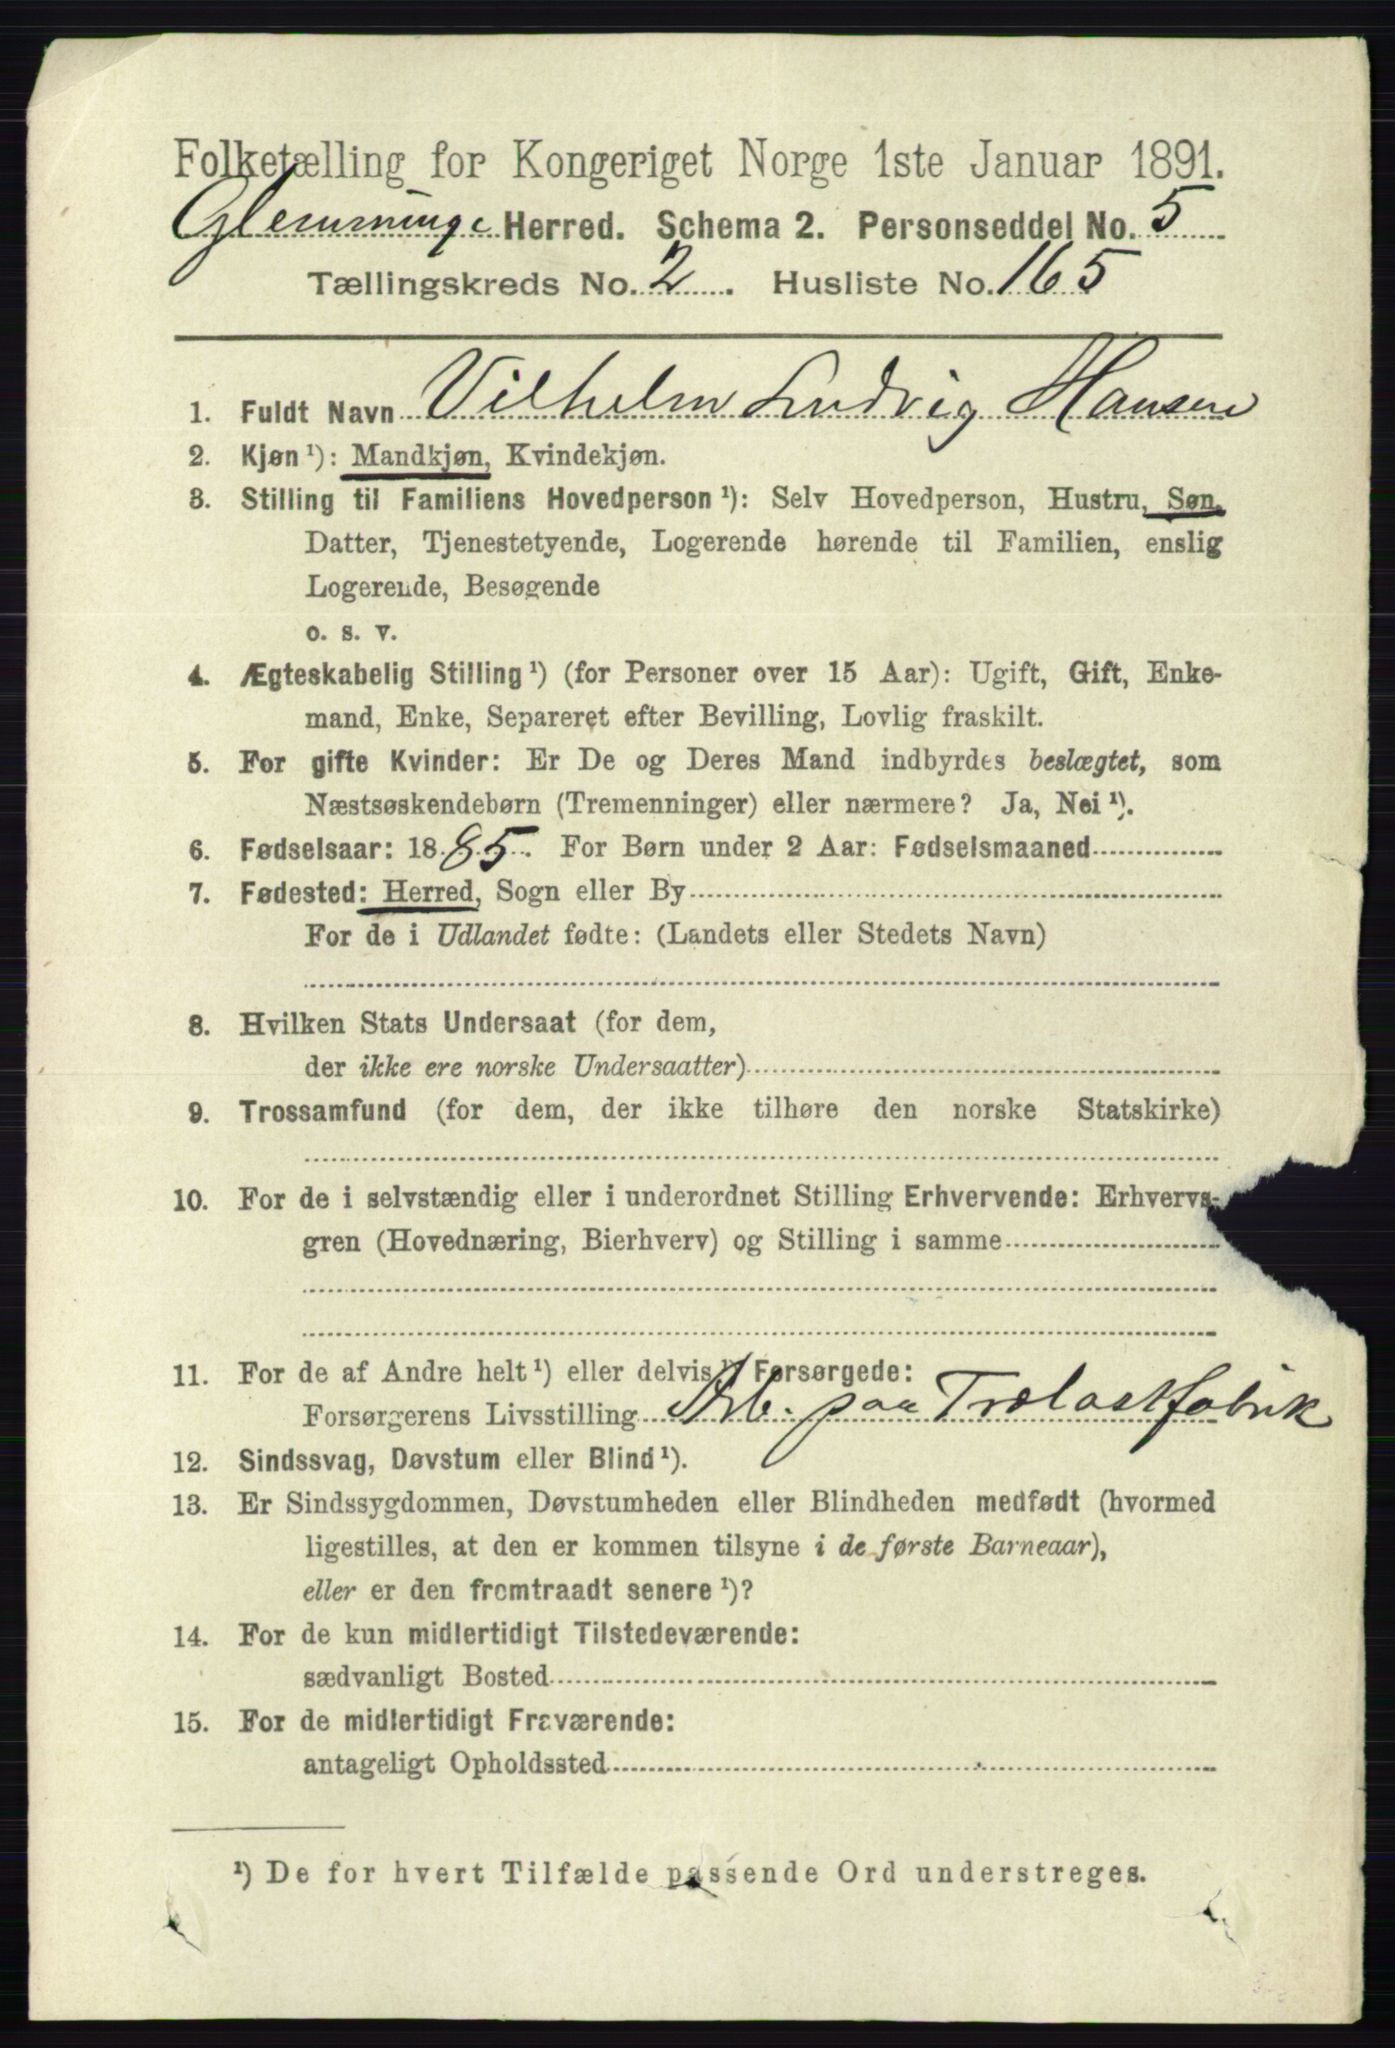 Folketælling for Kongeriget Norge 1ste Januar 1891.
Glemminge Herred. Schema 2. Personseddel No. 5
Tællingskreds No. 2. Husliste No. 165
1. Fuldt Navn Vilhelm Ludvig Hansen
2. Kjøn ¹): Mandkjøn, Kvindekjøn.
3. Stilling til Familiens Hovedperson ¹): Selv Hovedperson, Hustru, Søn,
Datter, Tjenestetyende, Logerende hørende til Familien, enslig
Logerende, Besøgende
o. s. v.
4. Ægteskabelig Stilling ¹) (for Personer over 15 Aar): Ugift, Gift, Enke-
mand, Enke, Separeret efter Bevilling, Lovlig fraskilt.
5. For gifte Kvinder: Er De og Deres Mand indbyrdes beslægtet, som
Næstsøskendebørn (Tremenninger) eller nærmere? Ja, Nei ¹).
6. Fødselsaar: 1885. For Børn under 2 Aar: Fødselsmaaned
7. Fødested: Herred, Sogn eller By
For de i Udlandet fødte: (Landets eller Stedets Navn)
8. Hvilken Stats Undersaat (for dem,
der ikke ere norske Undersaatter)
9. Trossamfund (for dem, der ikke tilhøre den norske Statskirke)
10. For de i selvstændig eller i underordnet Stilling Erhvervende: Erhvervs-
gren (Hovednæring, Bierhverv) og Stilling i samme
11. For de af Andre helt ¹) eller delvis ¹) Forsørgede:
Forsørgerens Livsstilling Arb. paa Trælastfabrik
12. Sindssvag, Døvstum eller Blind ¹).
13. Er Sindssygdommen, Døvstumheden eller Blindheden medfødt (hvormed
ligestilles, at den er kommen tilsyne i de første Barneaar),
eller er den fremtraadt senere ¹)?
14. For de kun midlertidigt Tilstedeværende:
sædvanligt Bosted
15. For de midlertidigt Fraværende:
antageligt Opholdssted
¹) De for hvert Tilfælde passende Ord understreges.